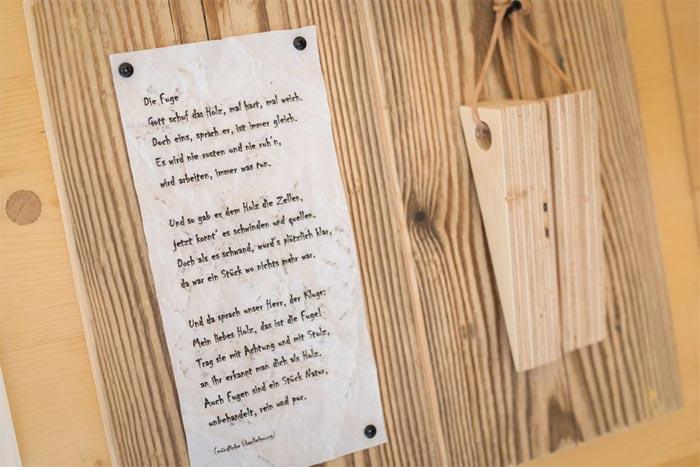 Die Fuge
Gott schuf das Holz, mal hart, mal weich.
Doch eins, sprach er, ist immer gleich.
Es wird nie rosten und nie ruh'n,
wird arbeiten, immer was tun.
Und so gab er dem Holz die Zellen,
jetzt konnt' es schwinden und quellen.
Doch als es schwand, wurd's plötzlich klar,
da war ein Stück wo nichts mehr war.
Und da sprach unser Herr, der Kluge:
Mein liebes Holz, das ist die Fuge!
Trag sie mit Achtung und mit Stolz,
an ihr erkannt man dich als Holz,
Auch Fugen sind ein Stück Natur,
unbehandelt, rein und pur.
(mündliche Überlieferung)